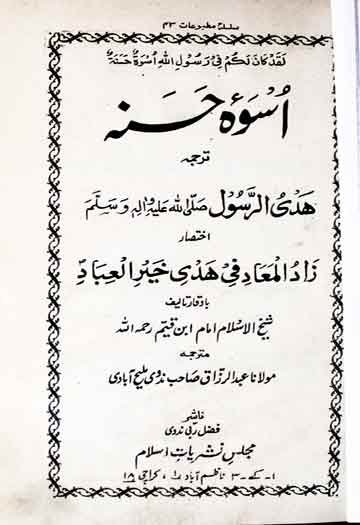 سلسلہ مطبوعات ۴۳
لَقَدْ كَانَ لَكُمْ فِيْ رَسُوْلِ اللهِ اُسْوَةٌ حَسَنَةٌ
اُسْوَۂ حَسَنہ
ترجمہ
هَدْىُ الرَّسُوْل صَلَّى الله عَلَيْهِ وَاٰلِهٖ وَسَلَّمَ
اختصار
زَادُ الْمَعَاد فِيْ هَدْىِ خَيْرِ الْعِبَاد
شیخ الاسلام امام ابن قیّم رحمہ اللہ
مترجمہ
مولانا عبد الرزاق صاحب ندوی ملیح آبادی
ناشر
فضل ربی ندوی
مجلس نشریات اسلام
۱۔ کے۔ ۳ ناظم آباد ۱، کراچی ۱۸